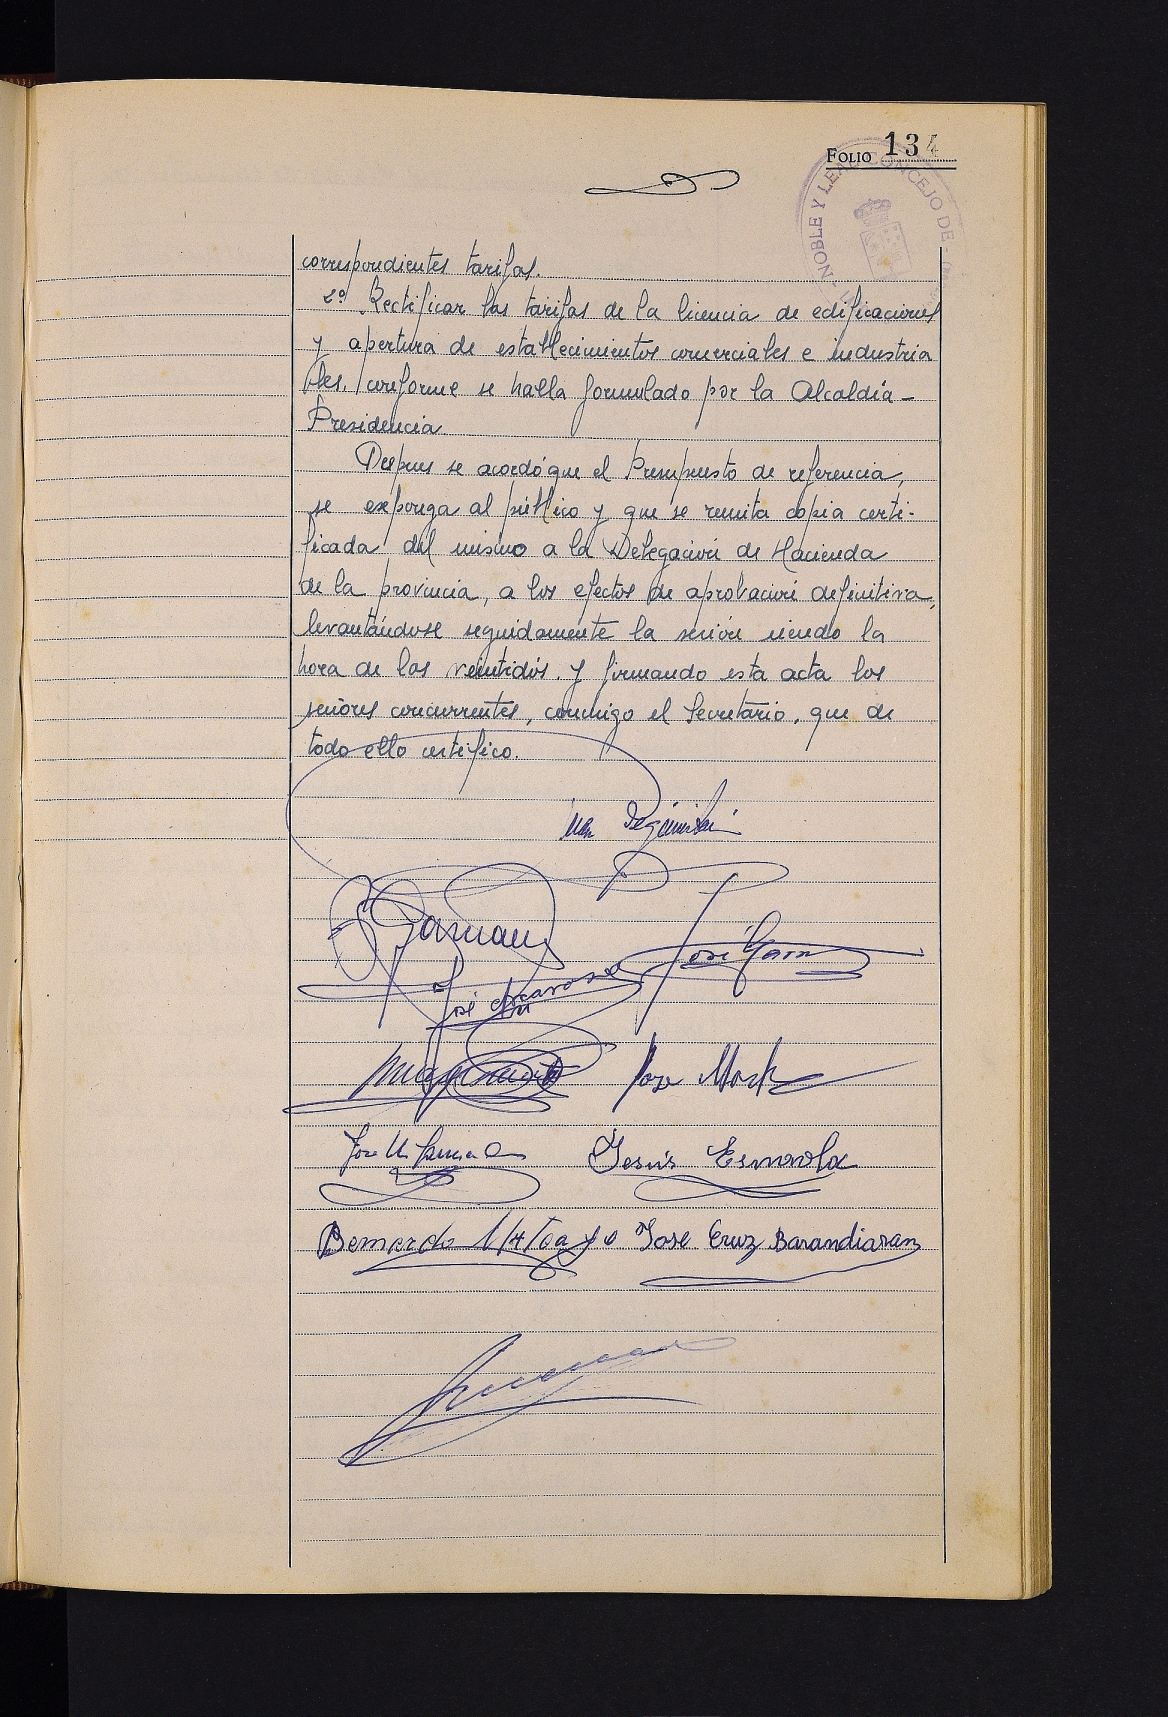 FOLIO 134
NOBLE Y LEAL CONCEJO DE
correspondientes tarifas.
2º Rectificar las tarifas de la licencia de edificaciones
y apertura de establecimientos comerciales e industria
les, conforme se halla formulado por la Alcaldía-
Presidencia.
Despues se acordó que el Presupuesto de referencia,
se exponga al público y que se remita copia certi-
ficada del mismo a la Delegación de Hacienda
de la provincia, a los efectos de aprobación definitiva,
levantándose seguidamente la sesión siendo la
hora de las veintidós. y firmando esta acta los
señores concurrentes, conmigo el Secretario, que de
todo ello certifico.
José
José
Jose
Jesús Esnaola
Bernardo José Cruz Barandiaran